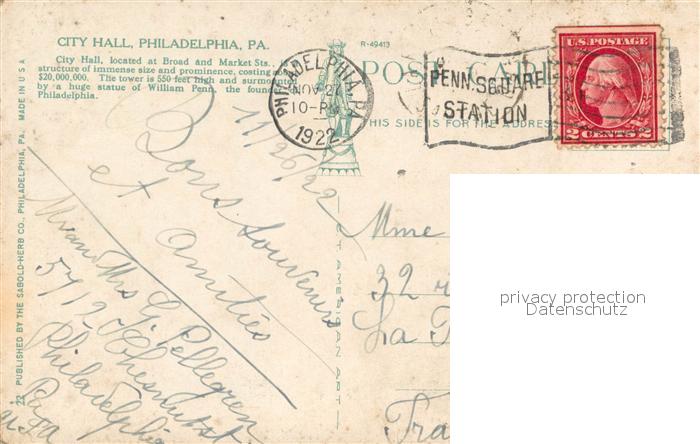 CITY HALL, PHILADELPHIA, PA.
City Hall, located at Broad and Market Sts.,
structure of immense size and prominence, costing
$20,000,000. The tower is 550 feet high and surmounted
by a huge statue of William Penn, the
Philadelphia.
R-49413
POST CARD
THIS SIDE IS FOR THE ADDRESS
PHILADELPHIA, PA.
NOV 2
10-PM
1922
PENN. SQUARE
STATION
U.S. POSTAGE
2 CENTS 2
11/26/22
Bons Souvenirs
et Amities
Mr and Mrs G. Pellegren
5712 Chesnut St.
Philadelphia
Pa
U.S.A
Mme
32 r
La
Fra
privacy protection
Datenschutz
AMERICAN ART
22 PUBLISHED BY THE SABOLD-HERB CO., PHILADELPHIA, PA. MADE IN USA